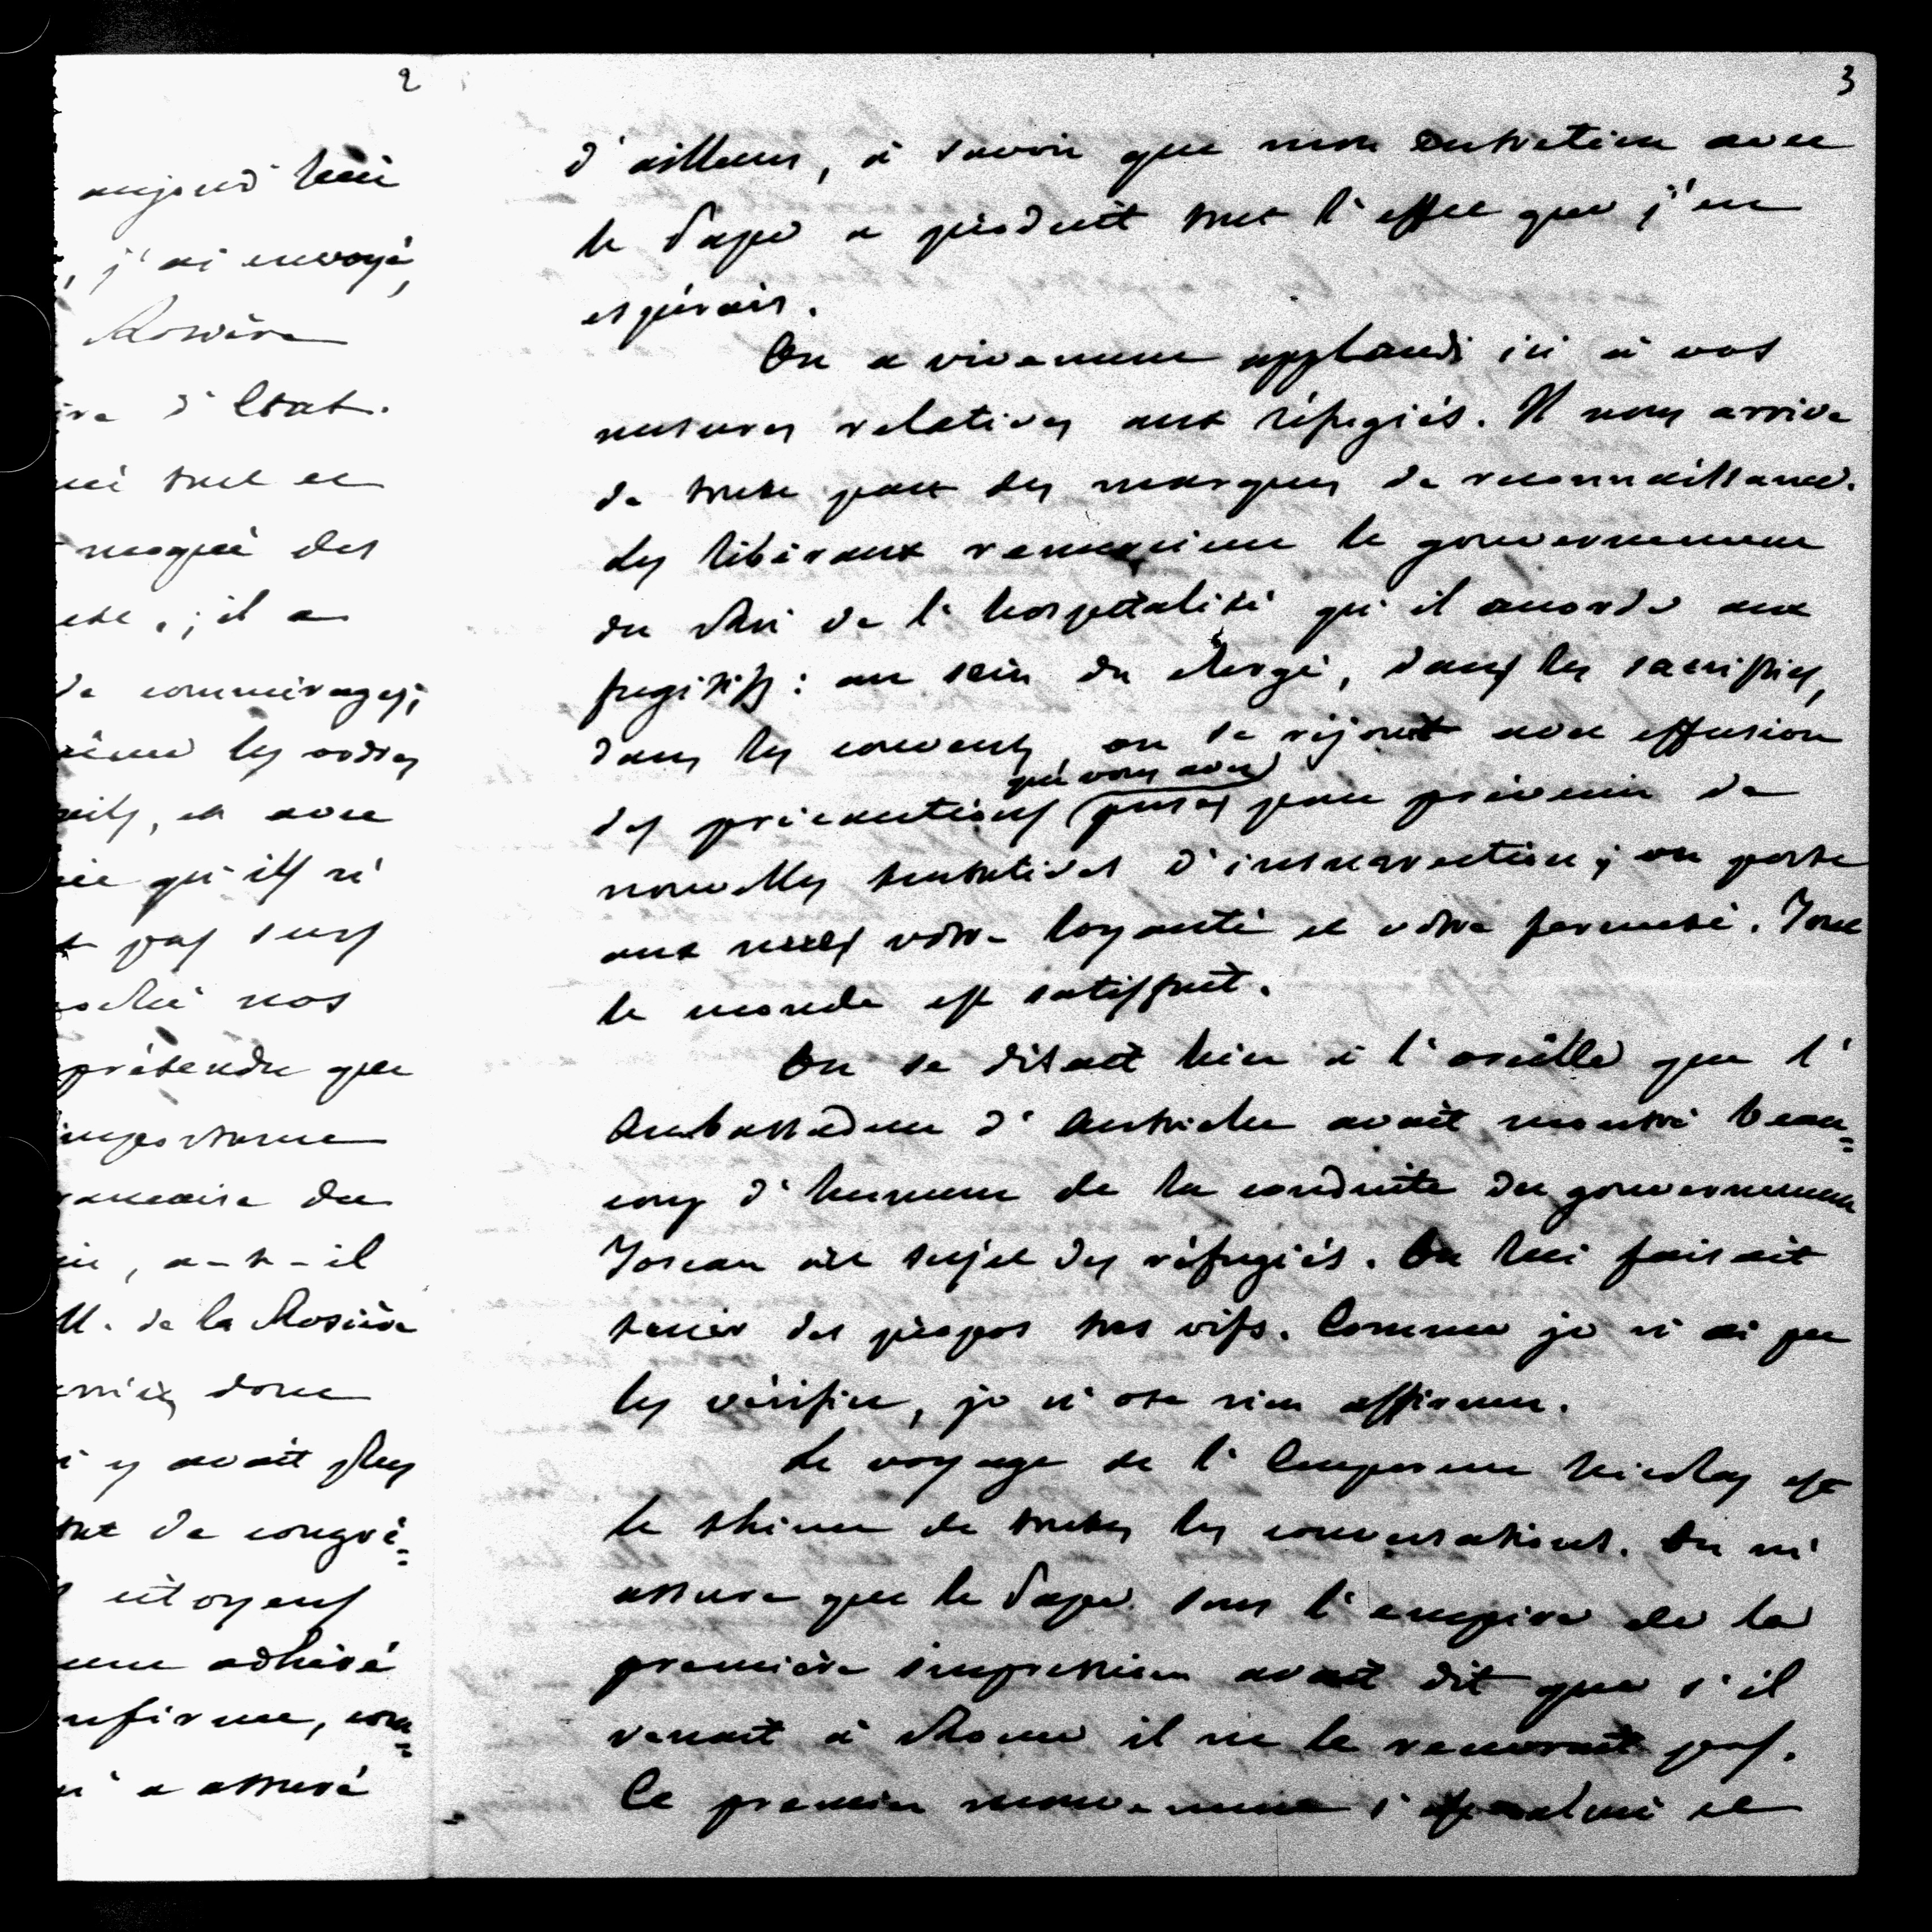 2
aujourd'hui
, j'ai envoyé,
Rosière
ire d'Etat.
ui tout ce
moqué des
; il a
de commérages;
les vôtres
, et avec
qu'ils n'
pas surs
nos
prétendu que
importance
française du
, a-t-il
M. de la Rosière
donc
y avait plus
tout de congré=
citoyens
adhéré
nfirme, com=
m'a assuré
3
d'ailleurs, à savoir que mon entretien avec
le Pape a produit tout l'effet que j'en
espérais.
On a vivement applaudi ici à vos
mesures relatives aux réfugiés. Il nous arrive
de toute part des marques de reconnaissance.
Les libéraux remercient le gouvernement
du Roi de l'hospitalité qu'il accorde aux
fugitifs: au sein du clergé, dans les sacristies,
dans les couvents, on se réjouit avec effusion
que vous avez
des précautions prises pour prévenir de
nouvelles tentatives d'insurrection; on porte
aux nues votre loyauté et votre fermeté. Tout
le monde est satisfait.
On se disait hier à l'oreille que l'
Ambassadeur d'Autriche avait montré beau=
coup d'humeur de la conduite du gouvernement
Toscan au sujet des réfugiés. On lui faisait
tenir des propos très vifs. Comme je n'ai pu
les vérifier, je n'ose rien affirmer.
Le voyage de l'Empereur Nicolas est
le thème de toutes les conversations. On m'
assure que le Pape sous l'empire de la
première impression avait dit que s'il
venait à Rome il ne le recevrait pas.
Ce premier mouvement s'est calmé et